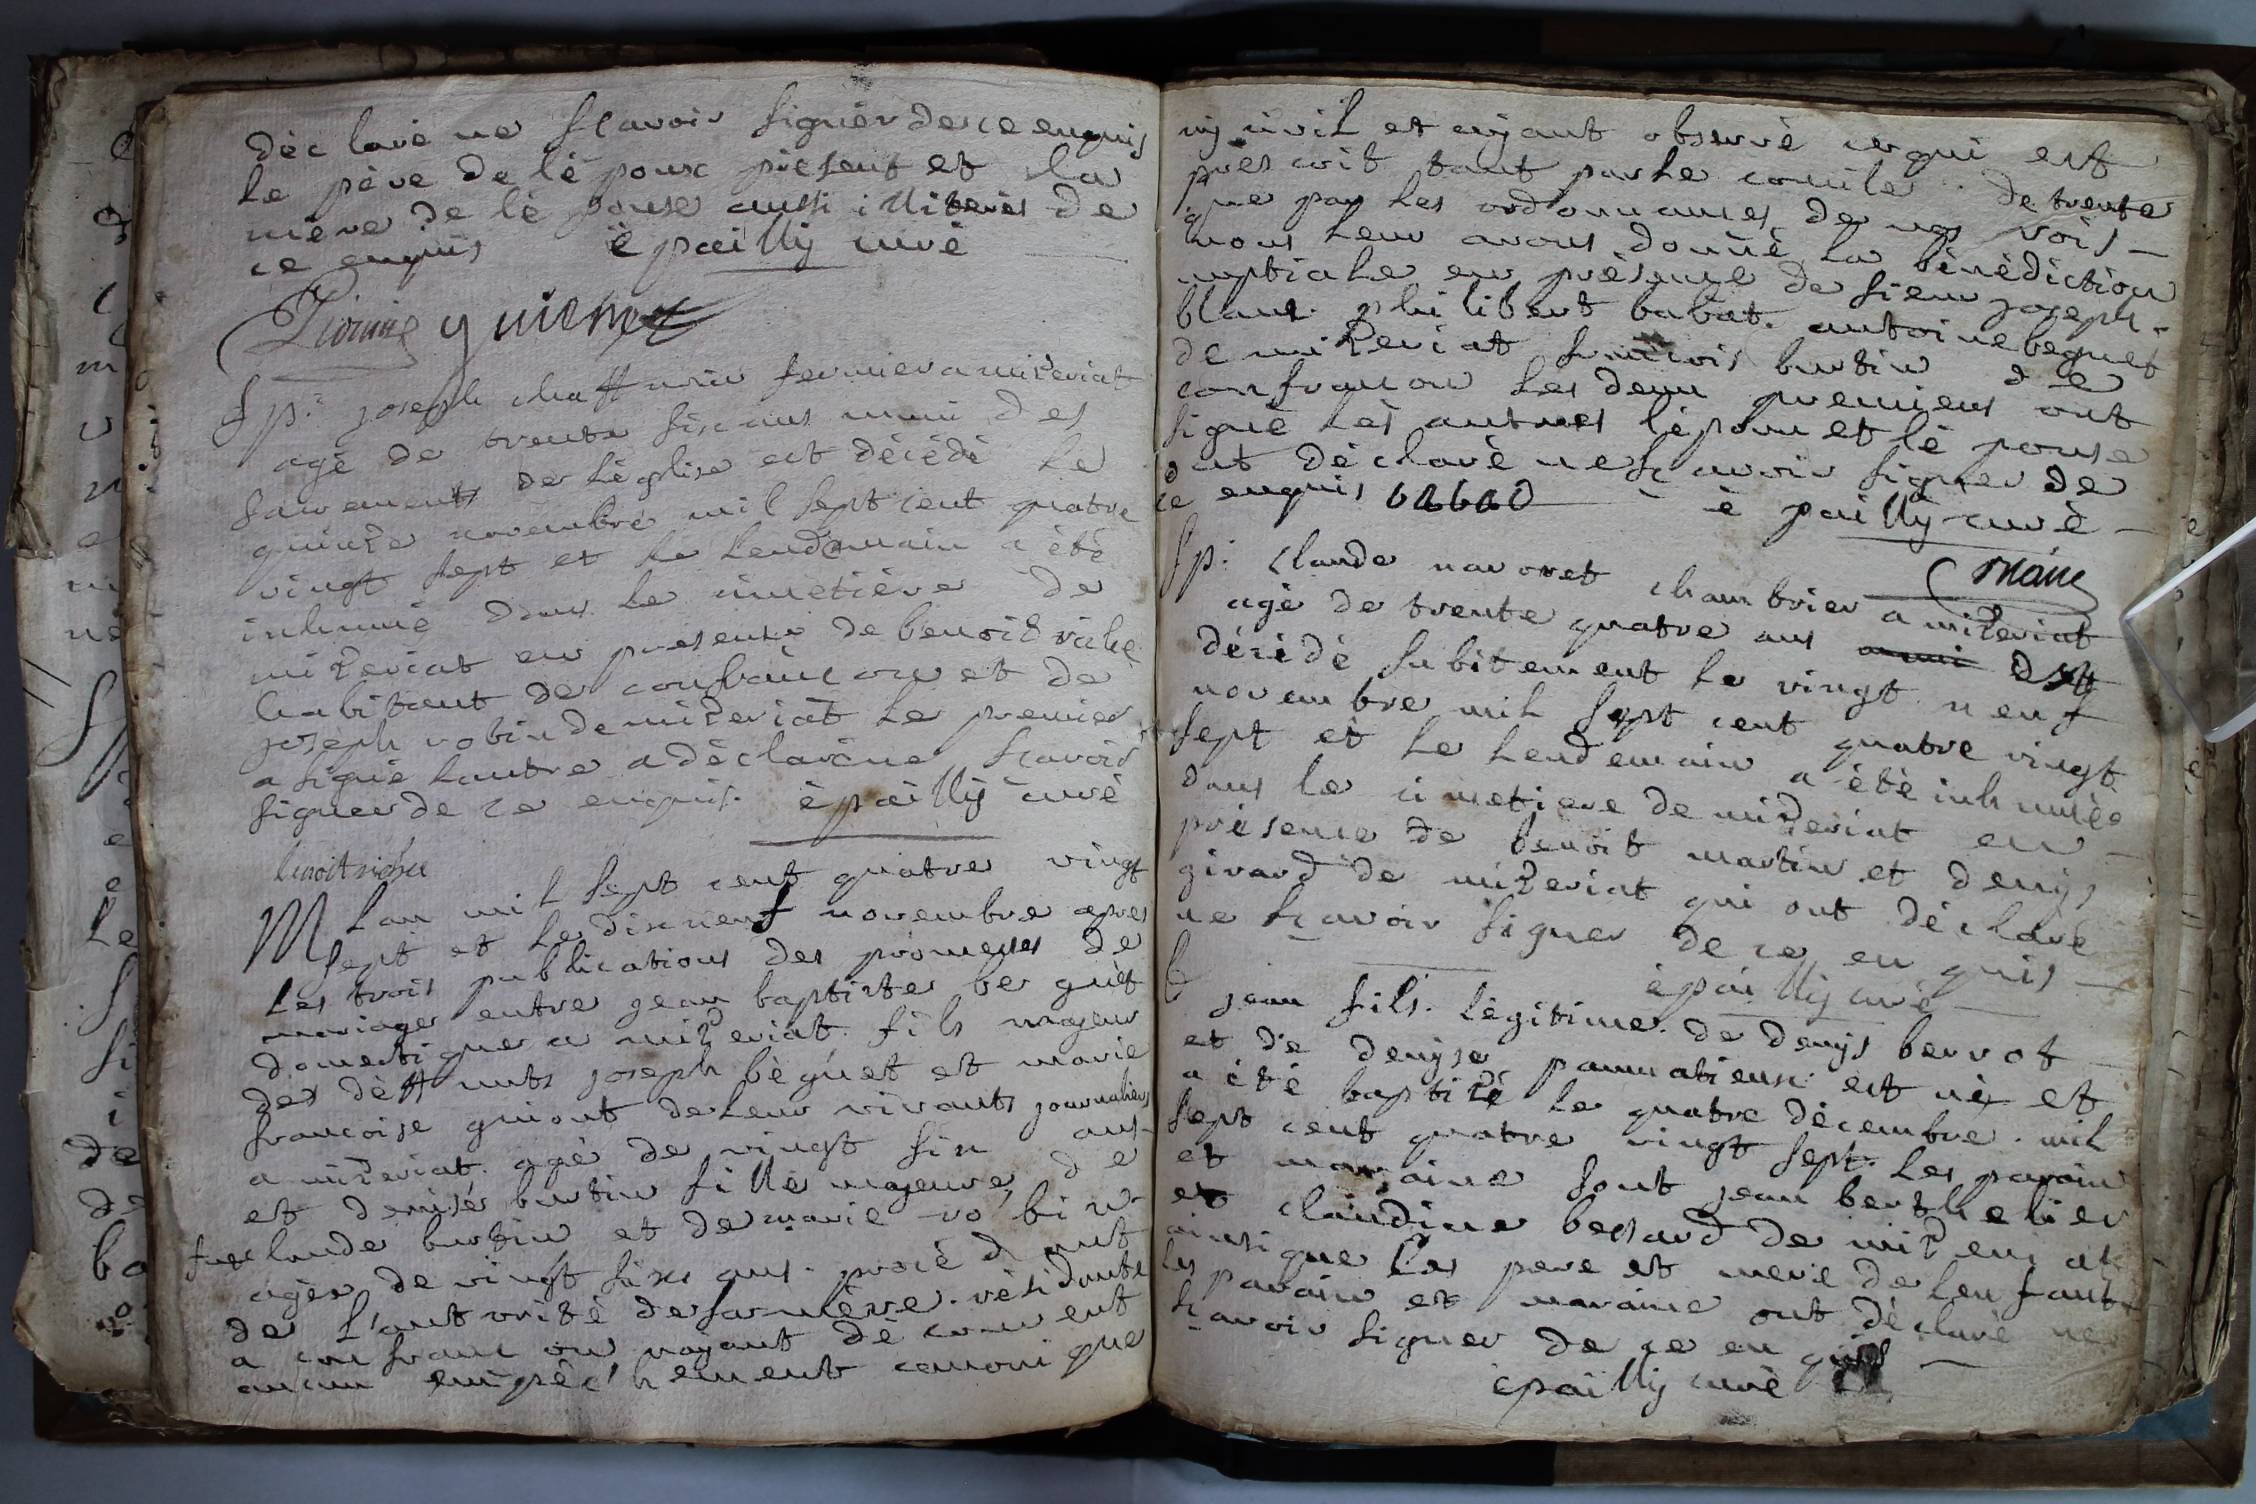 déclaré ne scavoir signér de ce enquis
le père de lépoux présent et la
mere de lé pouse aussi illiterés de
ce enquis épailly curé
Sp. joseph chaffurin fermier a mizeriat
agé de trente six ans muni des
sacrements de l'église est décédé le
quinze novembre mil sept cent quatre
vingt sept et le lendemain a été
inhumé dans le cimetière de
mizeriat en presence de benoit vichè
habitant de confrançon et de
joseph robin de mizeriat le premier
a signé lautre a déclaré ne scavoir
signer de ce enquis épailly curé
benoit
M Lan mil sept cent quatre vingt
sept et le dix neuf novembre apres
les trois publications des promesses de
mariage entre jean baptiste beguet
domestique a mizeriat fils majeur
des déffunts joseph béguet et marie
francoise guiont de leur vivants journaliers
a mizeriat agé de vingt six ans
et denise burtin fille majeure de
fuxt claude burtin et de marie robin
agée de vingt six ans procédant
de l'autorité de sa mère résidante
a confrancon nayant découvert
aucun empêchement canonique
ny civil et ayant observé ce qui est
prescrit tant par le concile de trente
que par les ordonnances de nos rois
nous leur avons donné la bénédiction
nuptiale en présence de sieur joseph
blanc philibert babat antoine beguet
de mizeriat francois burtin de
confrancon les deux premiers ont
signé les autres lépoux et lé pouse
ont déclaré ne scavoir signer de
ce enquis babad épailly curé
Sp. Claude navoret chambrier a mizeriat
agé de trente quatre ans est
décédé subitement le vingt neuf
novembre mil sept cent quatre vingt
sept et le lendemain a été inhumée
dans le cimetiere de mizeriat en
présence de benoit martin et denys
girard de mizeriat qui ont déclaré
ne scavoir signer de ce enquis
épailly curé
b jean fils légitime de denys berrot
et de denyse pannatieux est né et
a été baptizé le quatre décembre mil
sept cent quatre vingt sept les parain
et maraine sont jean berthelier
et claudine bessard de mizeriat
ainsi que les pere et mere de lenfant
les parain et maraine ont déclaré ne
scavoir signer de ce enquis
épailly curé